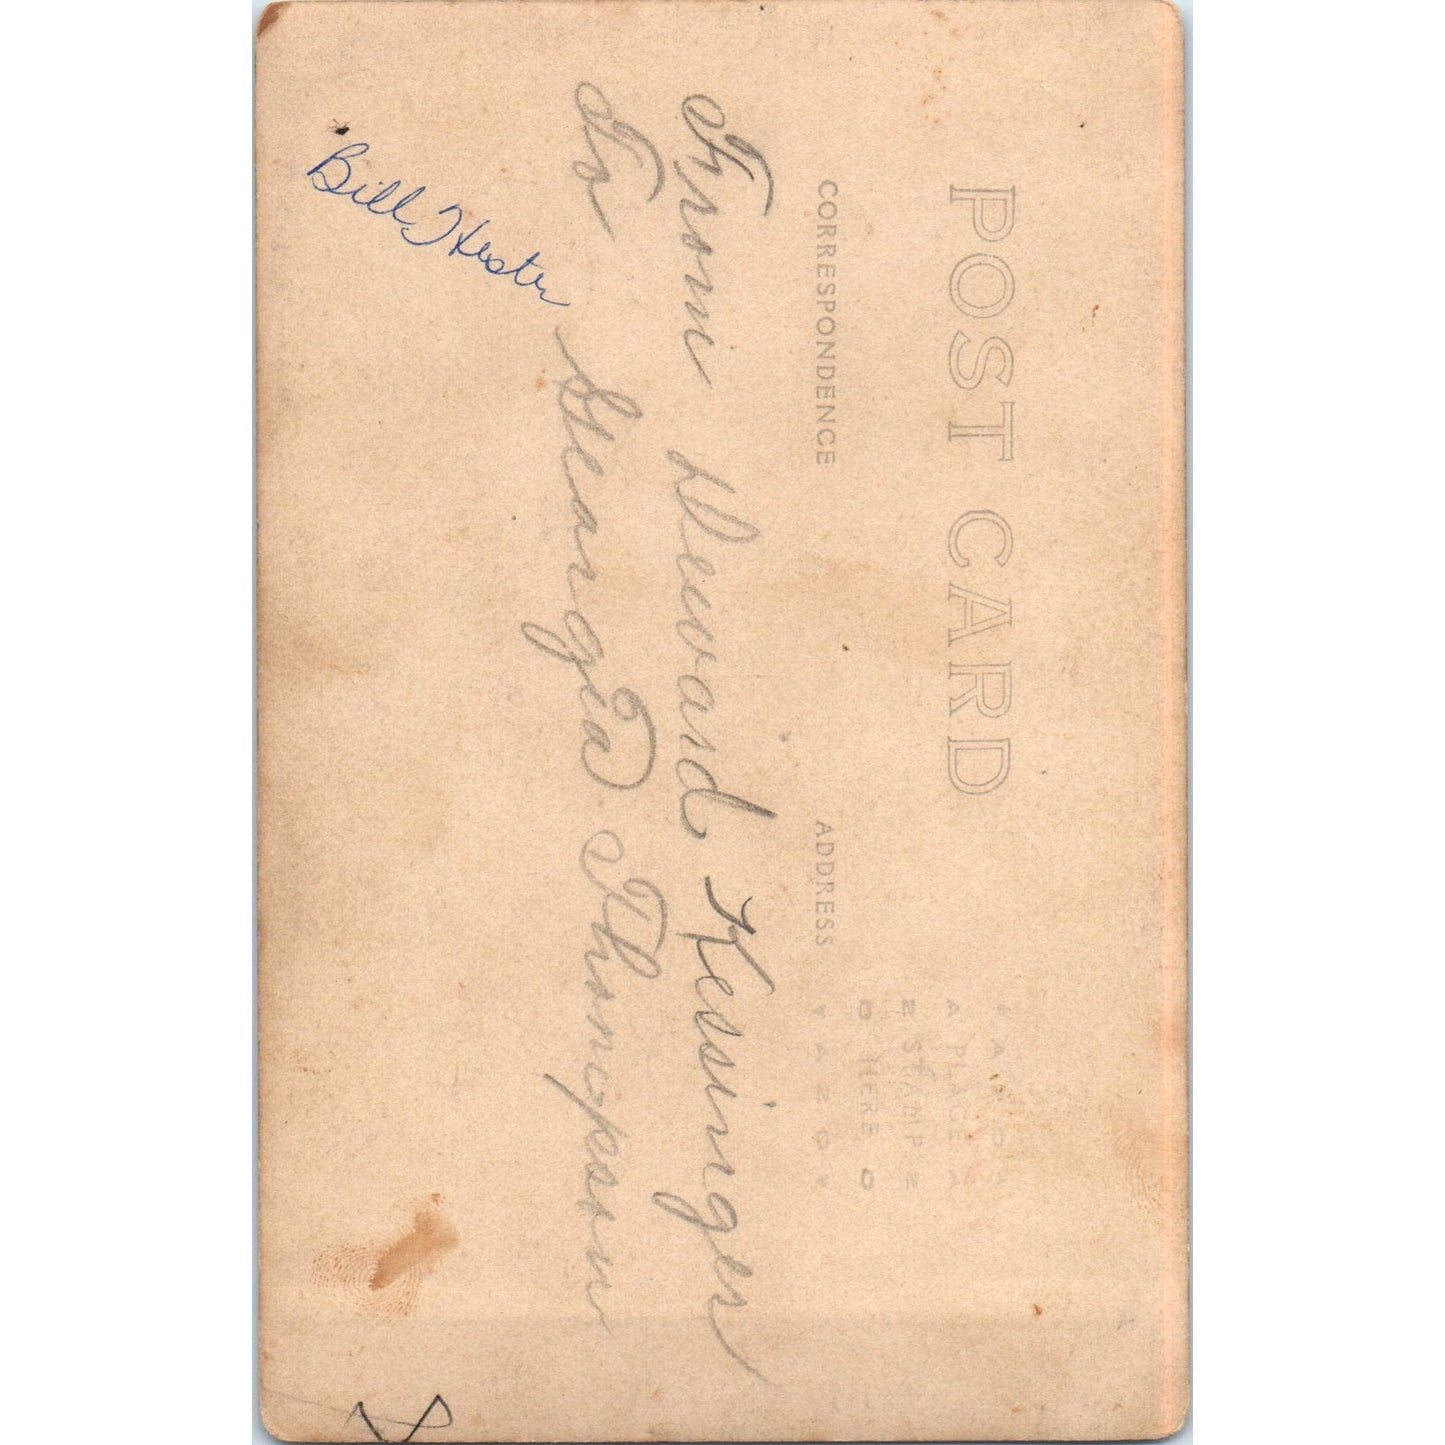 POST CARD
CORRESPONDENCE
ADDRESS
PLACE
STAMP
HERE
From Deward Kessinger
To Geargia Thompson
Bill Hester